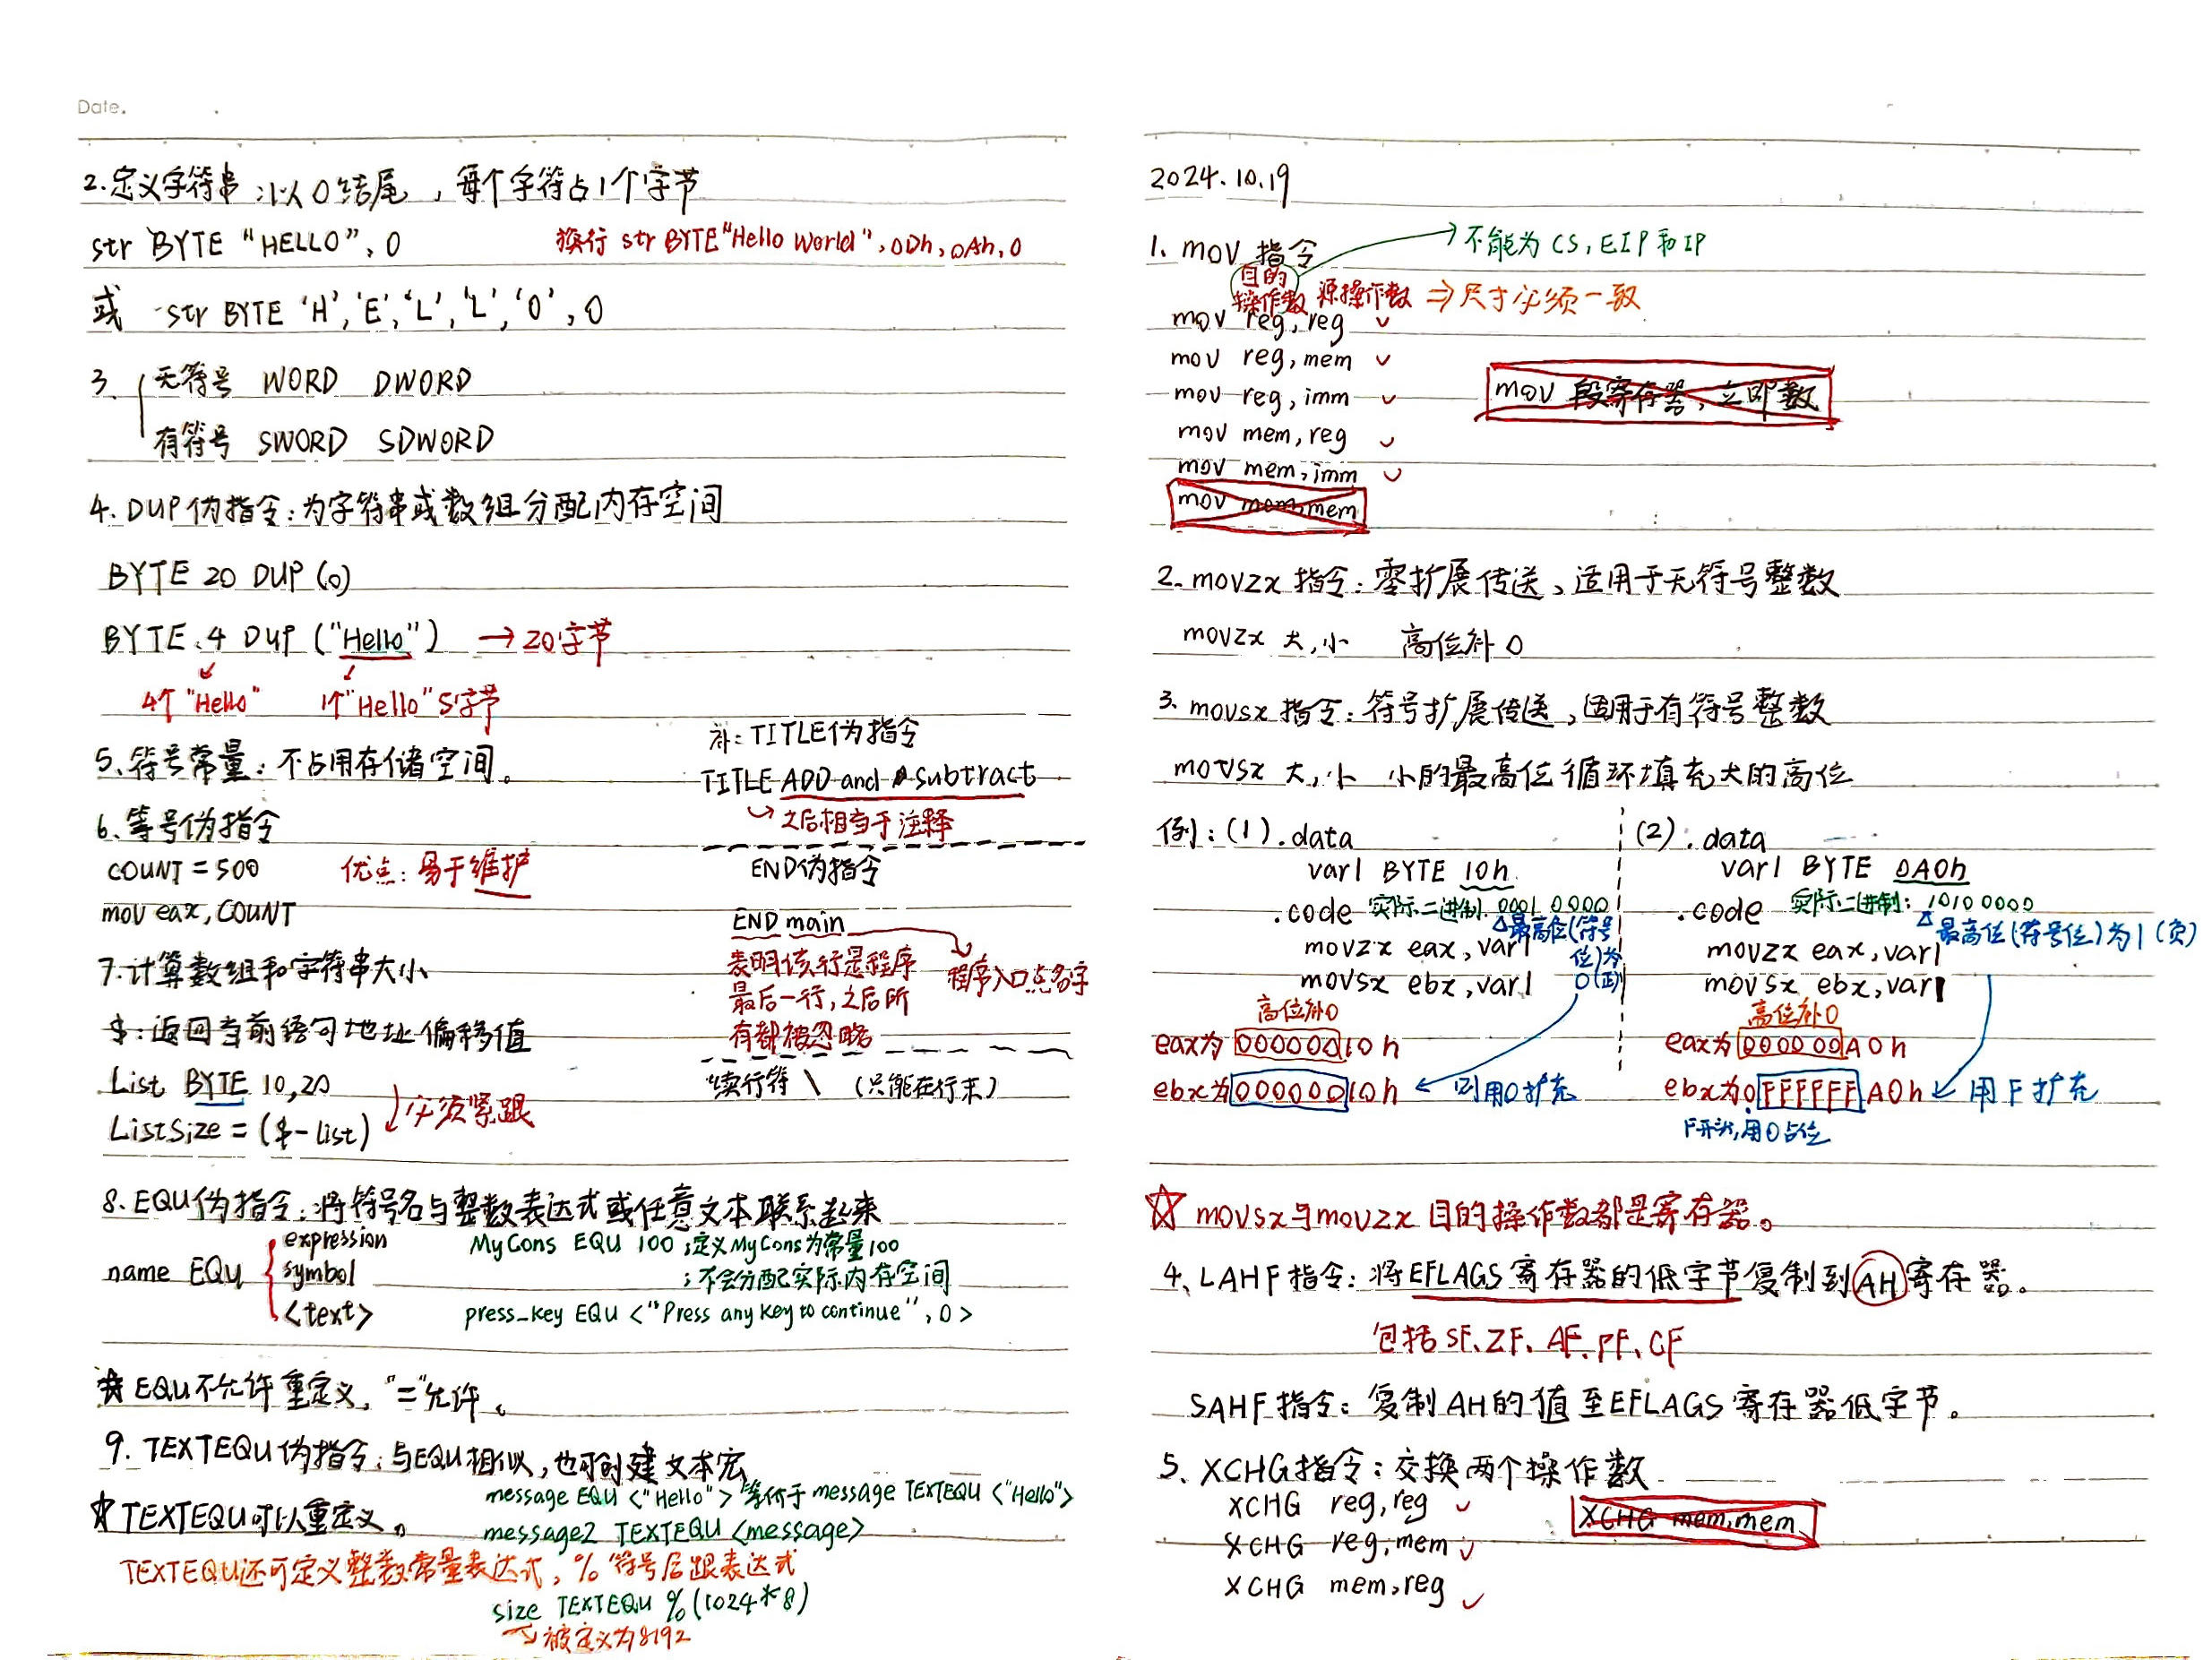 Date.
2.定义字符串:以0结尾,每个字符占1个字节
str BYTE "HELLO", 0
换行 str BYTE "Hello World", 0Dh, 0Ah, 0
或 str BYTE 'H','E','L','L','O',0
3. 无符号 WORD DWORD
有符号 SWORD SDWORD
4. DUP伪指令:为字符串或数组分配内存空间
BYTE 20 DUP (0)
BYTE 4 DUP ("Hello") → 20字节
4个"Hello" 1个"Hello"5字节
5、符号常量:不占用存储空间。
6、等号伪指令
COUNT = 500 优点:易于维护
mov eax, COUNT
7.计算数组和字符串大小
$:返回当前语句地址偏移值
List BYTE 10,20
ListSize = ($-list) 必须紧跟
补:TITLE伪指令
TITLE ADD and subtract
之后相当于注释
END伪指令
END main
表明该行是程序
最后一行,之后所
有都被忽略
程序入口点名字
续行符 \ (只能在行末)
8. EQU伪指令:将符号名与整数表达式或任意文本联系起来
name EQU
expression
symbol
<text>
MyCons EQU 100 ;定义MyCons为常量100
;不会分配实际内存空间
press_key EQU <"Press any key to continue", 0>
☆ EQU不允许重定义,"="允许。
9. TEXTEQU伪指令:与EQU相似,也可创建文本宏
message EQU <"Hello"> 等价于 message TEXTEQU <"Hello">
☆ TEXTEQU可以重定义。
message2 TEXTEQU <message>
TEXTEQU还可定义整数常量表达式,%符号后跟表达式
size TEXTEQU %(1024*8)
→被定义为8192
2024.10.19
1. mov 指令
→不能为CS,EIP和IP
目的
操作数 源操作数 ⇒尺寸必须一致
mov reg, reg ✓
mov reg, mem ✓
mov reg, imm ✓
mov 段寄存器,立即数
mov mem, reg ✓
mov mem, imm ✓
mov mem, mem
2. movzx 指令:零扩展传送、适用于无符号整数
movzx 大,小 高位补0
3、movsx 指令:符号扩展传送,适用于有符号整数
movsx 大,小 小的最高位循环填充大的高位
例:(1).data
var1 BYTE 10h
.code 实际二进制:0001 0000
△最高位(符号位)为0(正)
movzx eax, var1
movsx ebx, var1
高位补0
eax为00000010h
ebx为00000010h ← 即用0扩充
(2).data
var1 BYTE 0A0h
.code 实际二进制:1010 0000
△最高位(符号位)为1(负)
movzx eax, var1
movsx ebx, var1
高位补0
eax为000000A0h
ebx为0FFFFFFA0h ← 用F扩充
F开头,用0占位
☆ movsx与movzx目的操作数都是寄存器。
4、LAHF指令:将EFLAGS寄存器的低字节复制到AH寄存器。
包括SF、ZF、AF、PF、CF
SAHF指令:复制AH的值至EFLAGS寄存器低字节。
5、XCHG指令:交换两个操作数
XCHG reg, reg ✓
XCHG mem, mem
XCHG reg, mem ✓
XCHG mem, reg ✓